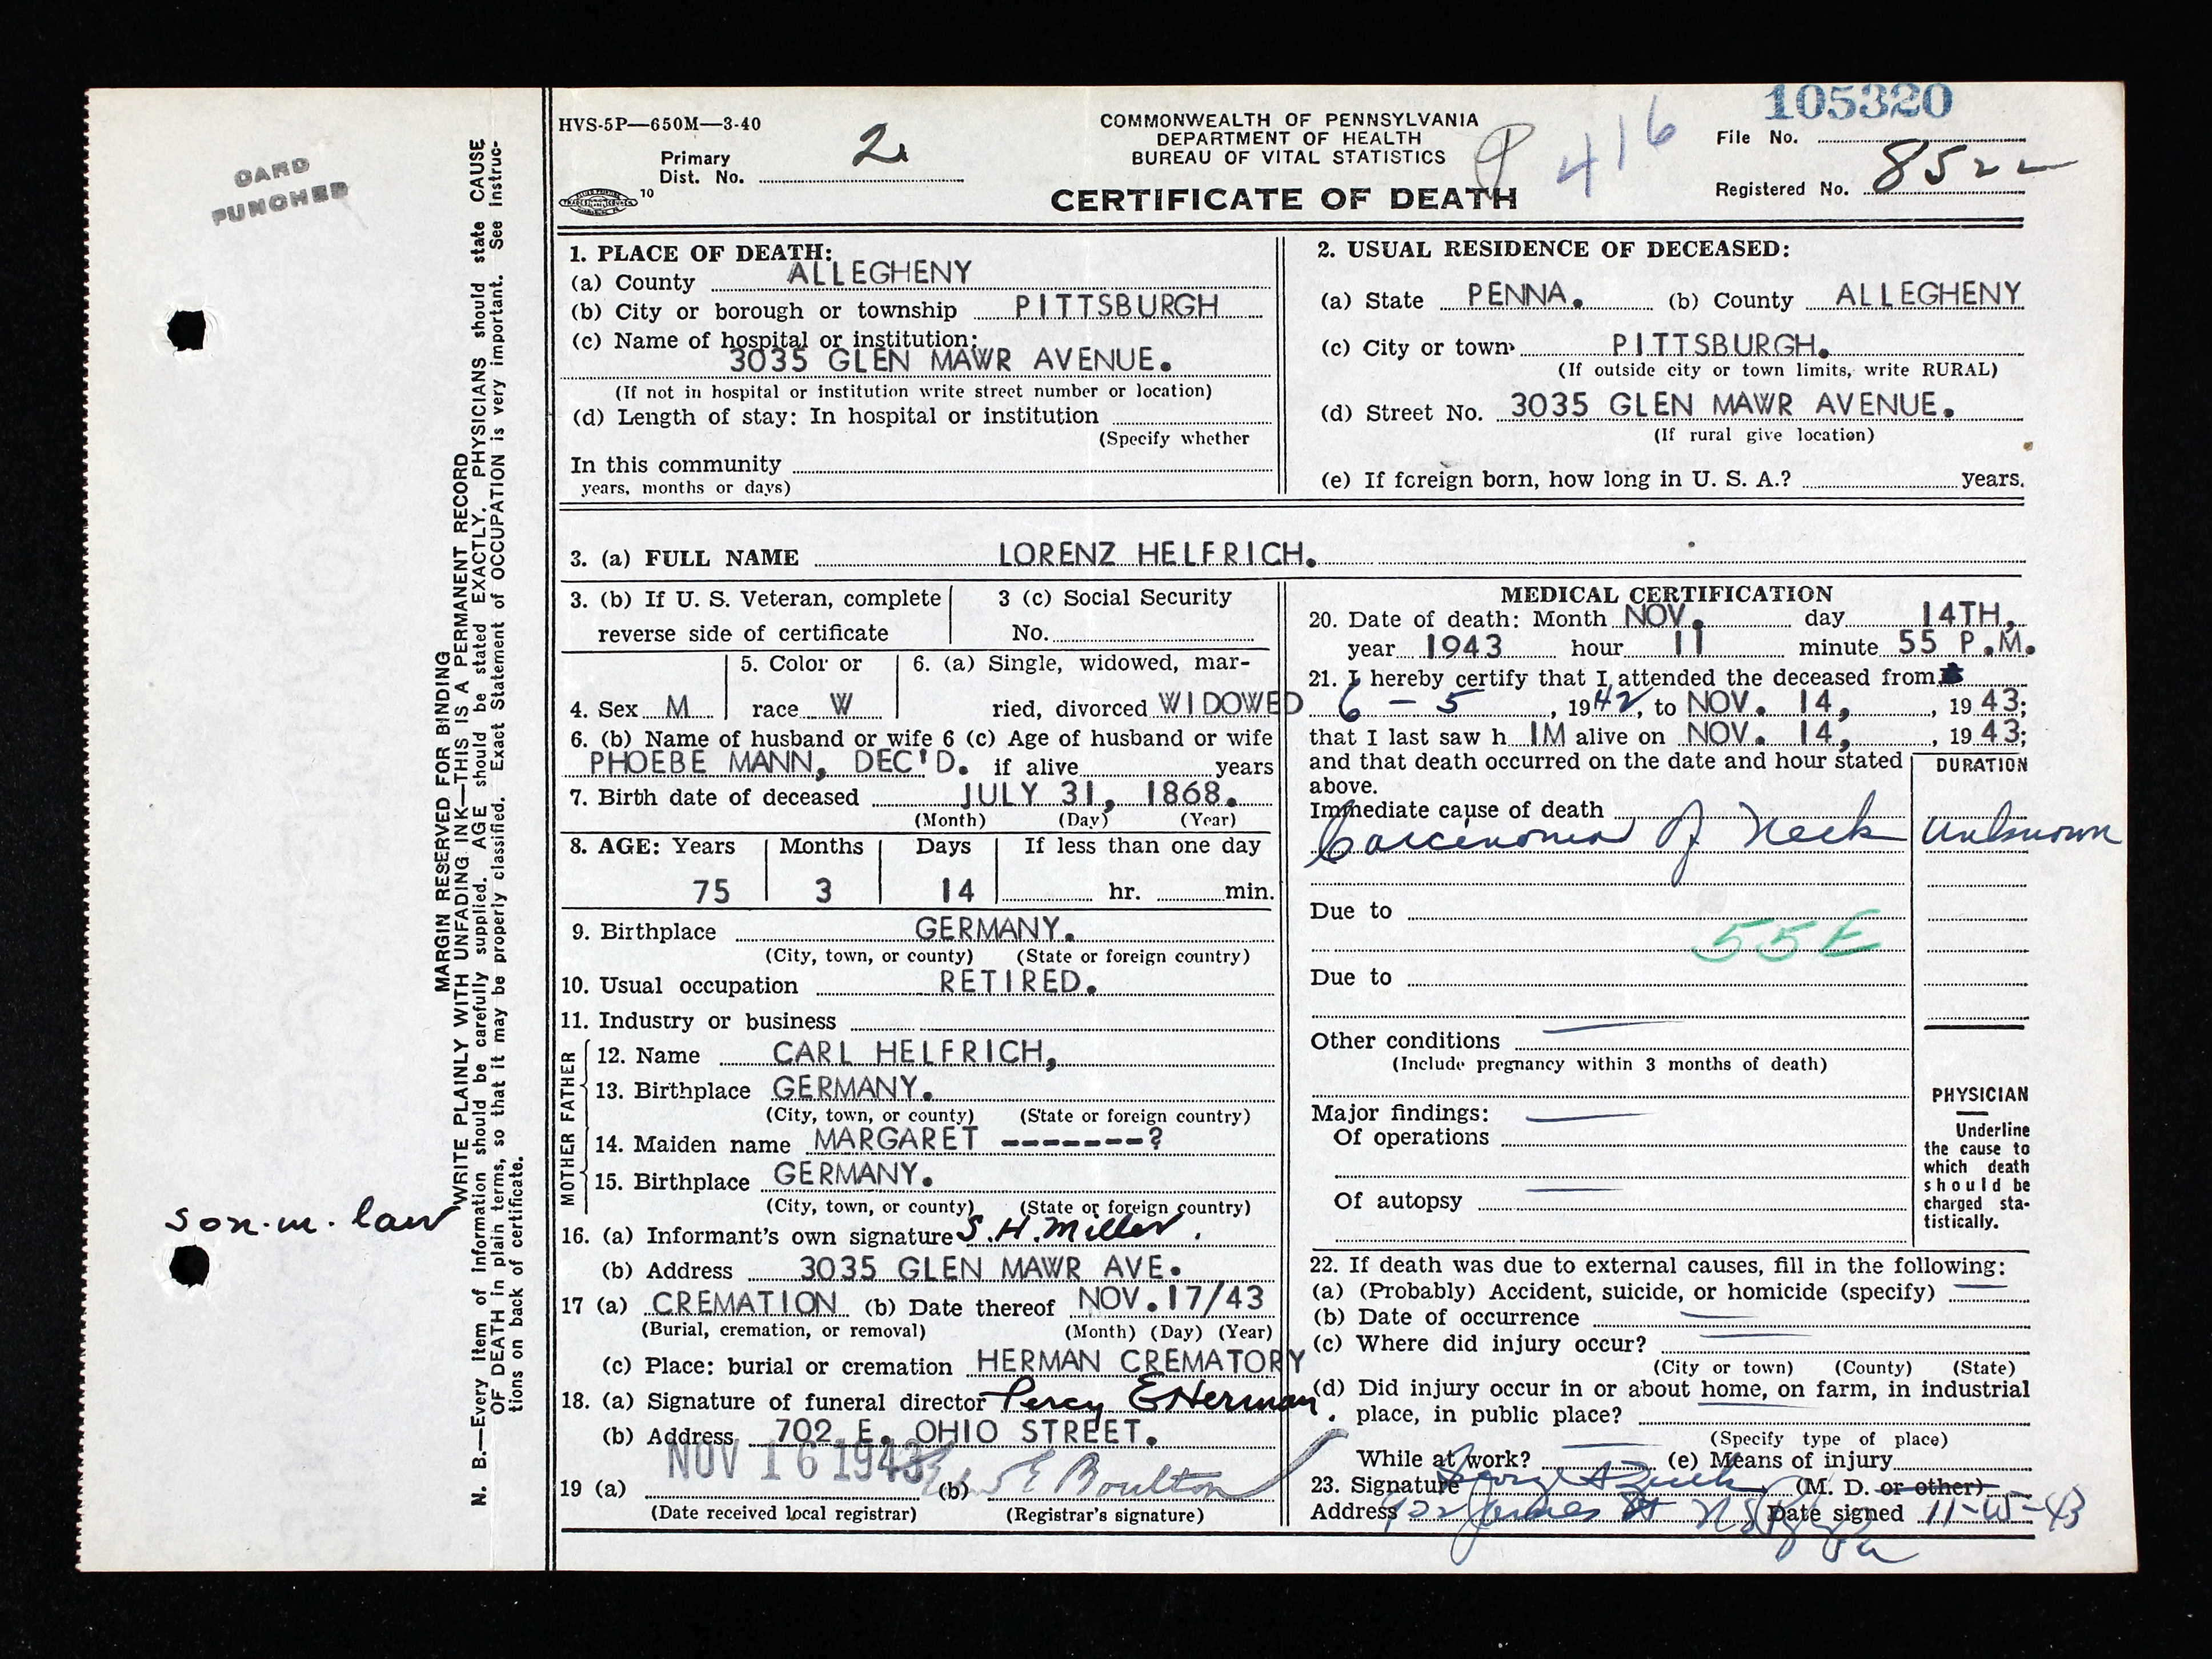 CARD
PUNCHED
MARGIN RESERVED FOR BINDING
WRITE PLAINLY WITH UNFADING INK—THIS IS A PERMANENT RECORD
N. B.—Every item of information should be carefully supplied. AGE should be stated EXACTLY. PHYSICIANS should state CAUSE
OF DEATH in plain terms, so that it may be properly classified. Exact Statement of OCCUPATION is very important. See instruc-
tions on back of certificate.
son-in-law
HVS-5P—650M—3-40
Primary
Dist. No. 2
10
COMMONWEALTH OF PENNSYLVANIA
DEPARTMENT OF HEALTH
BUREAU OF VITAL STATISTICS
CERTIFICATE OF DEATH
416
105320
File No.
Registered No. 8522
1. PLACE OF DEATH:
(a) County ALLEGHENY
(b) City or borough or township PITTSBURGH
(c) Name of hospital or institution:
3035 GLEN MAWR AVENUE.
(If not in hospital or institution write street number or location)
(d) Length of stay: In hospital or institution
(Specify whether
In this community
years, months or days)
2. USUAL RESIDENCE OF DECEASED:
(a) State PENNA. (b) County ALLEGHENY
(c) City or town PITTSBURGH.
(If outside city or town limits, write RURAL)
(d) Street No. 3035 GLEN MAWR AVENUE.
(If rural give location)
(e) If foreign born, how long in U. S. A.? years.
3. (a) FULL NAME LORENZ HELFRICH.
3. (b) If U. S. Veteran, complete
reverse side of certificate
3 (c) Social Security
No.
4. Sex M
5. Color or
race W
6. (a) Single, widowed, mar-
ried, divorced WIDOWED
6. (b) Name of husband or wife 6 (c) Age of husband or wife
PHOEBE MANN, DEC'D. if alive years
7. Birth date of deceased JULY 31, 1868.
(Month) (Day) (Year)
8. AGE: Years Months Days If less than one day
75 3 14 hr. min.
9. Birthplace GERMANY.
(City, town, or county) (State or foreign country)
10. Usual occupation RETIRED.
11. Industry or business
FATHER
12. Name CARL HELFRICH,
13. Birthplace GERMANY.
(City, town, or county) (State or foreign country)
MOTHER
14. Maiden name MARGARET -------?
15. Birthplace GERMANY.
(City, town, or county) (State or foreign country)
16. (a) Informant's own signature S. H. Miller.
(b) Address 3035 GLEN MAWR AVE.
17 (a) CREMATION (b) Date thereof NOV. 17/43
(Burial, cremation, or removal) (Month) (Day) (Year)
(c) Place: burial or cremation HERMAN CREMATORY
18. (a) Signature of funeral director Percy E Herman.
(b) Address 702 E. OHIO STREET.
NOV 16 1943
19 (a) (b) E Boulton
(Date received local registrar) (Registrar's signature)
MEDICAL CERTIFICATION
20. Date of death: Month NOV. day 14TH,
year 1943 hour 11 minute 55 P.M.
21. I hereby certify that I attended the deceased from
6 - 5, 1942, to NOV. 14, 1943;
that I last saw h IM alive on NOV. 14, 1943;
and that death occurred on the date and hour stated
above.
DURATION
Immediate cause of death
Carcinoma of Neck Unknown
Due to
55E
Due to
Other conditions
(Include pregnancy within 3 months of death)
Major findings:
Of operations
Of autopsy
PHYSICIAN
Underline
the cause to
which death
should be
charged sta-
tistically.
22. If death was due to external causes, fill in the following:
(a) (Probably) Accident, suicide, or homicide (specify)
(b) Date of occurrence
(c) Where did injury occur?
(City or town) (County) (State)
(d) Did injury occur in or about home, on farm, in industrial
place, in public place?
(Specify type of place)
While at work? (e) Means of injury
23. Signature (M. D. or other)
Address James St Date signed 11-15-43
Pa